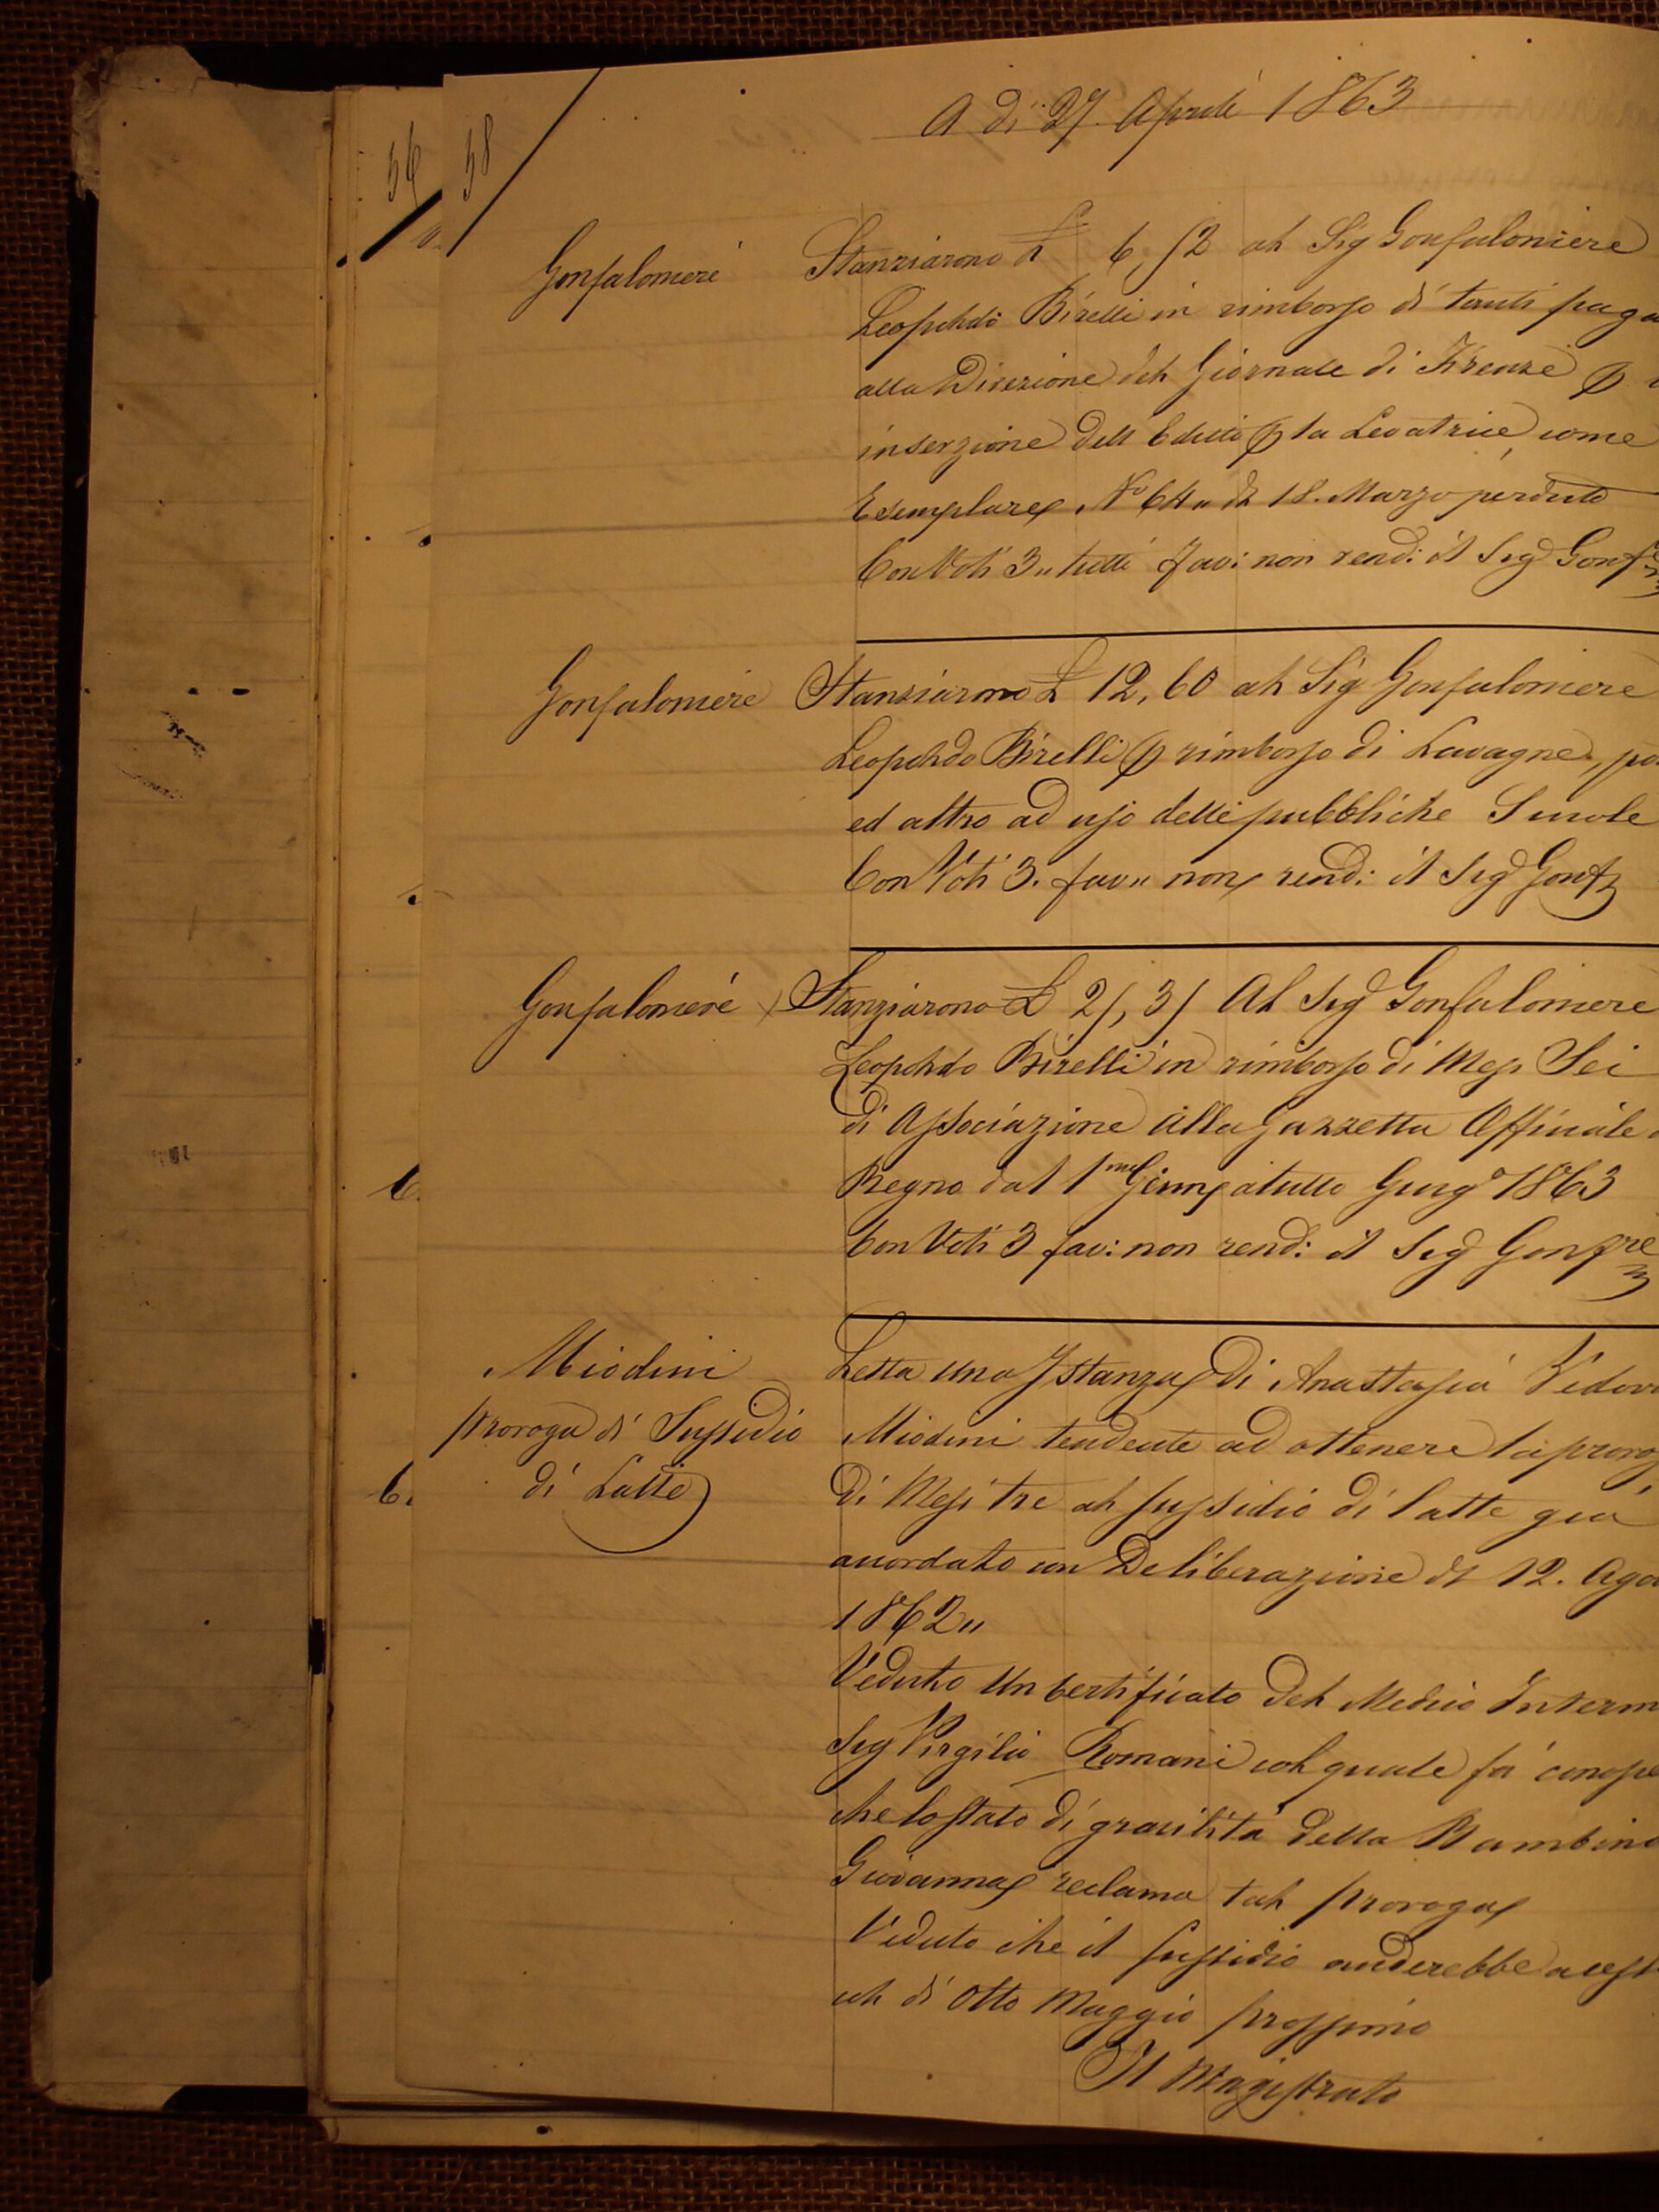 56
58
A dì 27. Aprile 1863
Gonfaloniere
Stanziarono £ 6,52 al Sig Gonfaloniere
Leopoldo Birelli in rimborso di tanti paga
alla Direzione del Giornale di Firenze p
inserzione dell Editto p la Levatrice, come
Esemplare Nº 64 " de 18. Marzo perduto
Con Voti 3 " tutti favi: non rendi: il Sigr Gonfre
Gonfaloniere
Stanziarono £ 12,60 al Sig Gonfaloniere
Leopoldo Birelli p rimborso di Lavagne, po
ed altro ad uso delle pubbliche Scuole
Con Voti 3. fav " non rendi: il Sigr Gonf
Gonfaloniere
Stanziarono £ 25,35 Al Sigr Gonfaloniere
Leopoldo Birelli in rimborso di Mesi Sei
di Associazione alla Gazzetta Officiale
Regno dal 1mo Genn a tutto Giugº 1863
Con Voti 3 favi: non rendi: il Sigr Gonfre
Miodini
proroga di Sussidio
di Latte
Letta una Istanza di Anastasia Vedov
Miodini tendente ad ottenere la prorog
di Mesi tre al sussidio di latte già
accordato con Deliberazione de 12. Ago
1862 "
Veduto Un Certificato del Medico Interin
Sig Virgilio Romani col quale fa conosce
che lo stato di gracilità della Bambina
Giovanna reclama tal proroga
Veduto che il sussidio anderebbe a cess
col dì otto Maggio prossimo
Il Magistrato